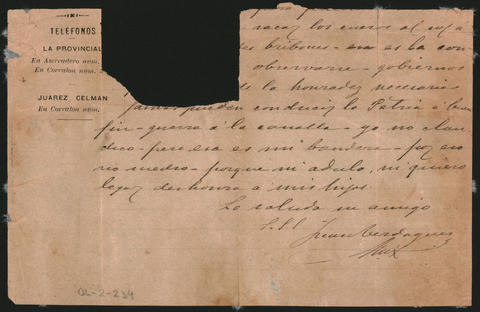 TELÉFONOS
LA PROVINCIAL
En Aserradero núm.
En Corralon núm.
JUAREZ CELMAN
En Corralon núm.
para
sacar los cueros al sol a
bribones - esa es la con
observarse - gobiernos
de la honradez necesaria
pueden conducir la Patria a buen
fin - guerra á la canalla - yo no clau
dico - pero esa es mi bandera - por eso
no medro - porque ni adulo, ni quiero
legar deshonra a mis hijos.
Lo saluda su amigo
S.S.S. Juan Verdaguer
OL-2-234